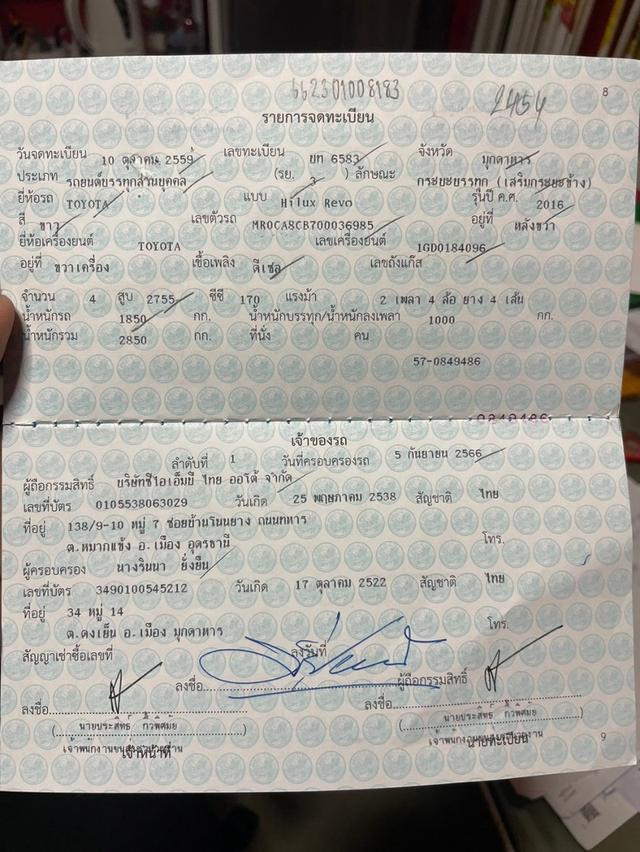 662301008183
2454
8
รายการจดทะเบียน
วันจดทะเบียน 10 ตุลาคม 2559 เลขทะเบียน บท 6583 จังหวัด มุกดาหาร
ประเภท รถยนต์บรรทุกส่วนบุคคล (รย. 3 ) ลักษณะ กระบะบรรทุก (เสริมกระบะข้าง)
ยี่ห้อรถ TOYOTA แบบ Hilux Revo รุ่นปี ค.ศ. 2016
สี ขาว เลขตัวรถ MR0CA8CB700036985 อยู่ที่ หลังขวา
ยี่ห้อเครื่องยนต์ TOYOTA เลขเครื่องยนต์ 1GD0184096
อยู่ที่ ขวาเครื่อง เชื้อเพลิง ดีเซล เลขถังแก๊ส
จำนวน 4 สูบ 2755 ซีซี 170 แรงม้า 2 เพลา 4 ล้อ ยาง 4 เส้น
น้ำหนักรถ 1850 กก. น้ำหนักบรรทุก/น้ำหนักลงเพลา 1000 กก.
น้ำหนักรวม 2850 กก. ที่นั่ง คน
57-0849486
0849486
เจ้าของรถ
ลำดับที่ 1 วันที่ครอบครองรถ 5 กันยายน 2566
ผู้ถือกรรมสิทธิ์ บริษัทซีไอเอ็มบี ไทย ออโต้ จำกัด
เลขที่บัตร 0105538063029 วันเกิด 25 พฤษภาคม 2538 สัญชาติ ไทย
ที่อยู่ 138/9-10 หมู่ 7 ซอยบ้านโนนยาง ถนนทหาร
ต.หมากแข้ง อ.เมือง อุดรธานี โทร.
ผู้ครอบครอง นางรินนา ยั่งยืน
เลขที่บัตร 3490100545212 วันเกิด 17 ตุลาคม 2522 สัญชาติ ไทย
ที่อยู่ 34 หมู่ 14
ต.ดงเย็น อ.เมือง มุกดาหาร โทร.
สัญญาเช่าซื้อเลขที่ ลงวันที่
ลงชื่อ ผู้ถือกรรมสิทธิ์
ลงชื่อ ลงชื่อ
(นายประสิทธิ์) (นายประสิทธิ์)
เจ้าหน้าที่ นายทะเบียน
9